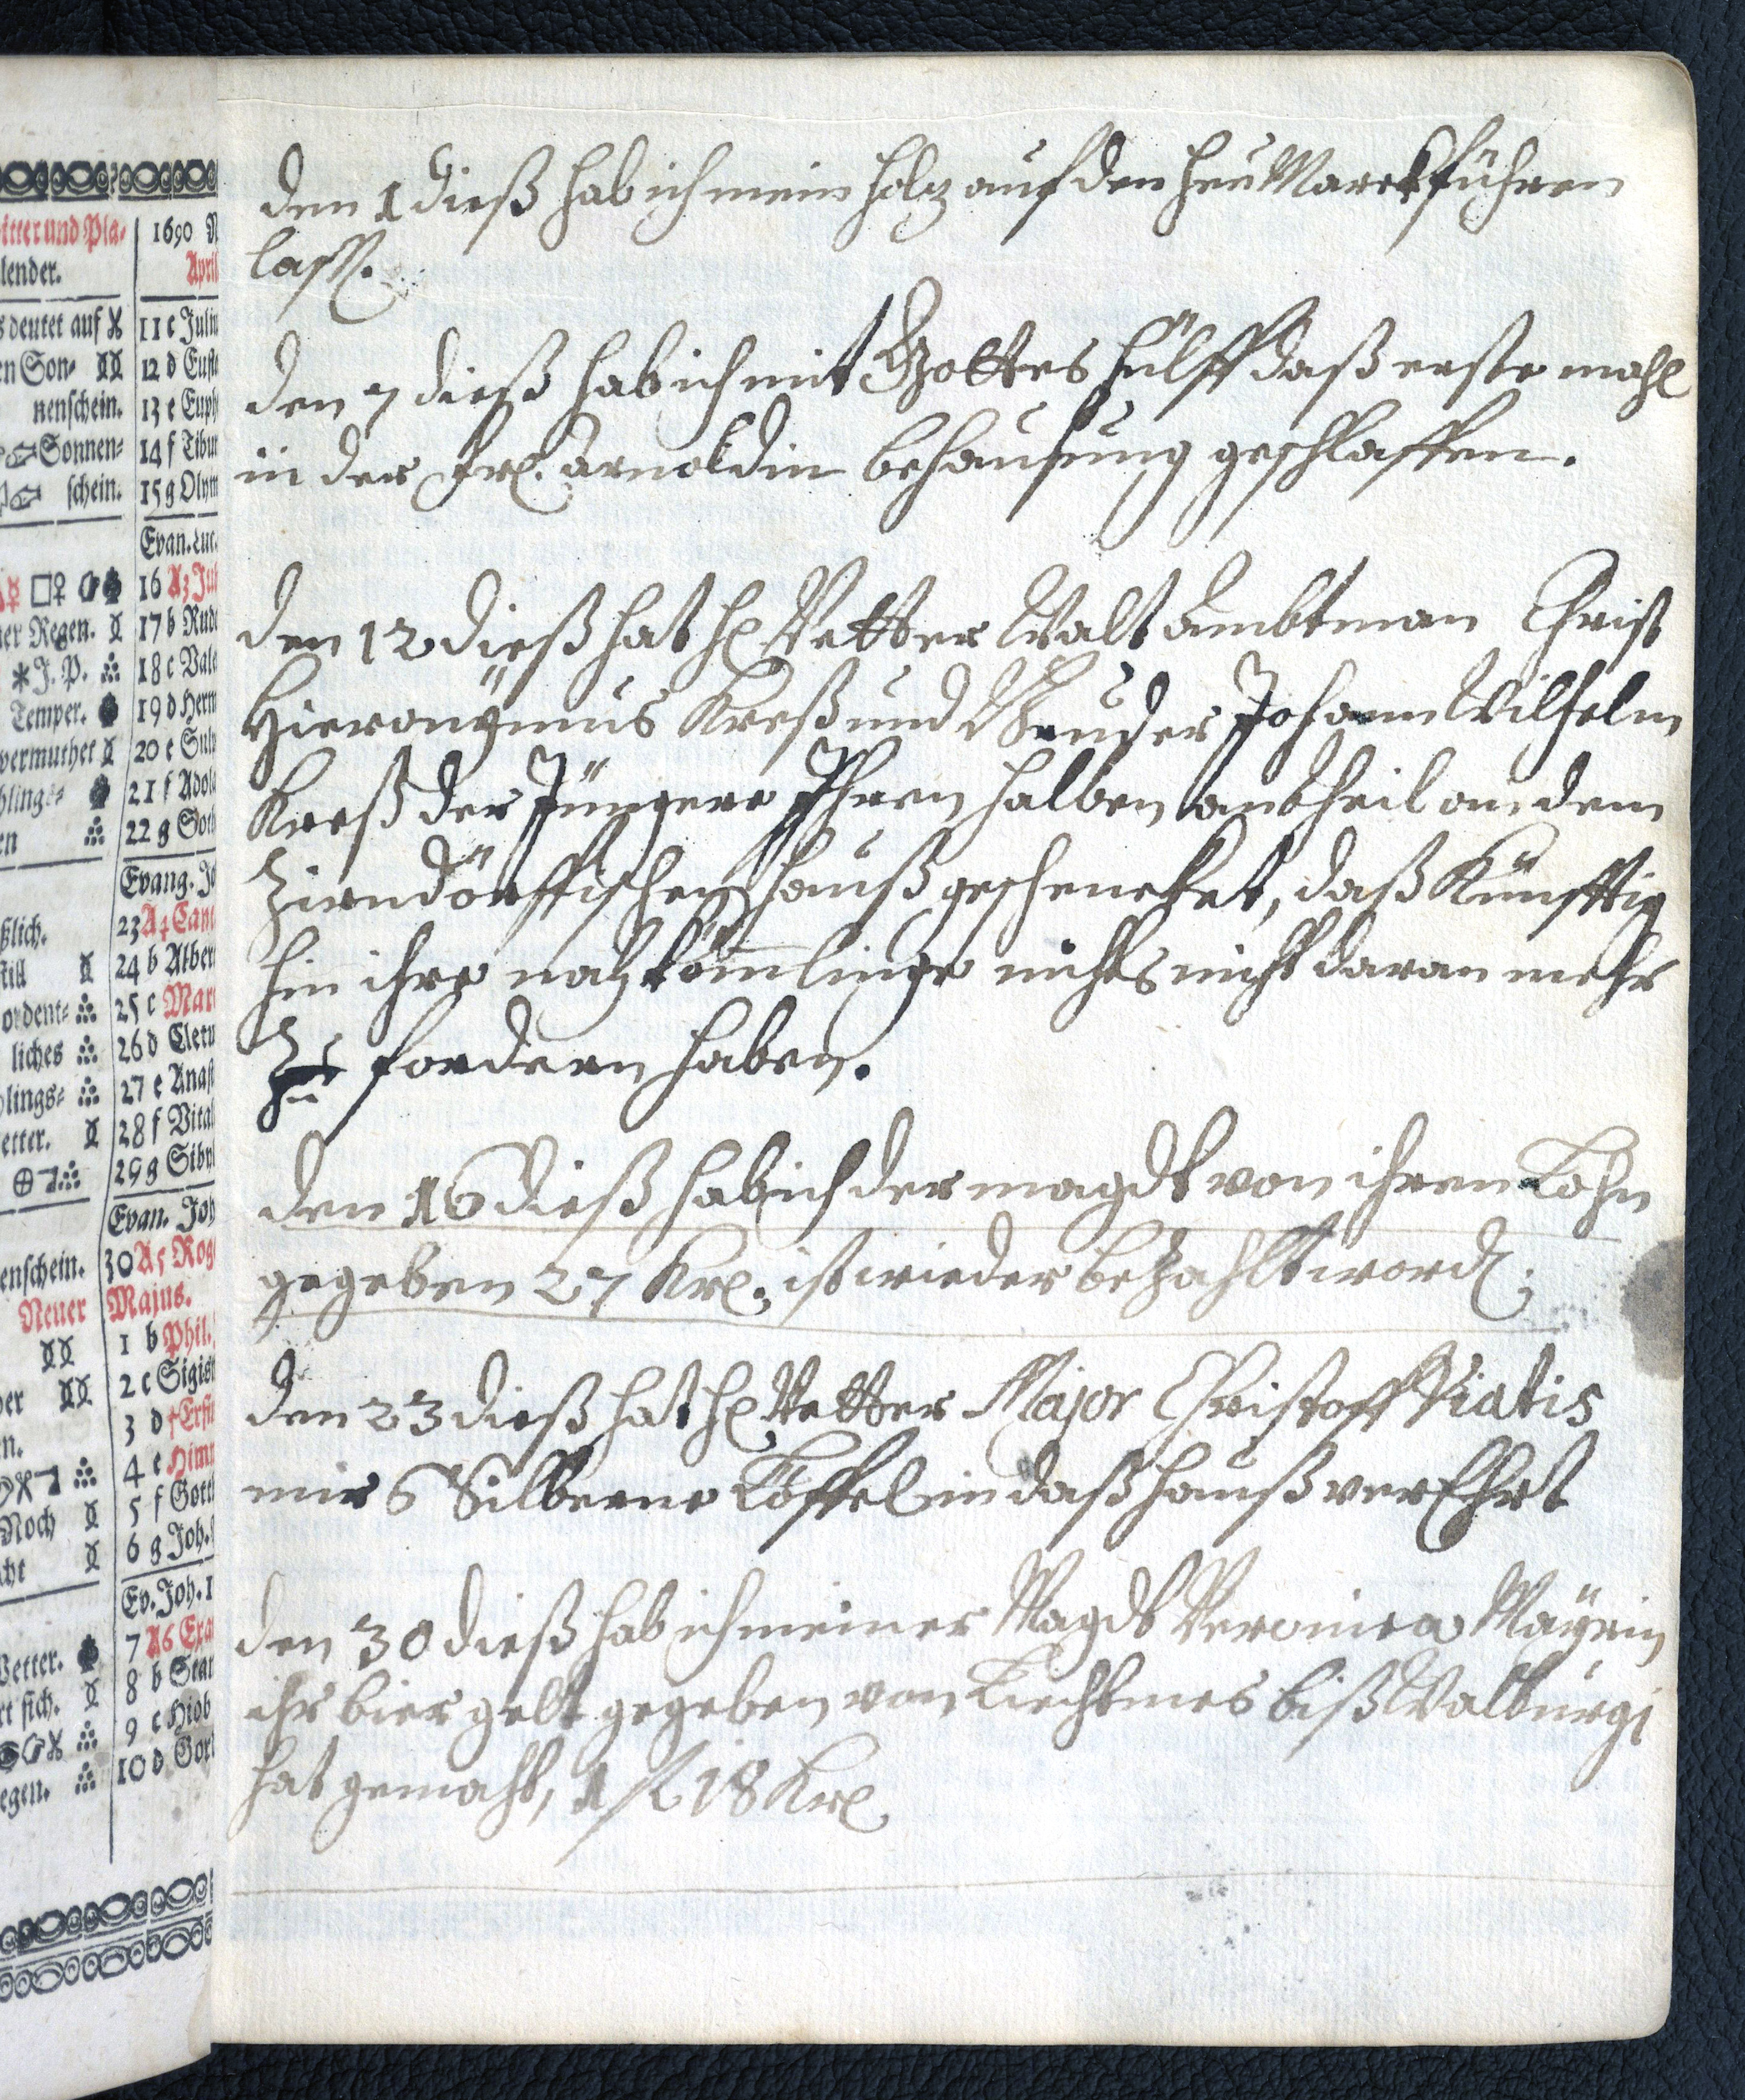 itter und Pla-
lender.
s deutet auf
en Son-
nenschein.
Sonnen-
schein.
er Regen.
J. P.
Temper.
vermuthet
hlings-
en
ßlich.
till
ordent-
liches
lings-
etter.
enschein.
Neuer
er
n.
Noch
cht
Wetter.
rt sich.
egen.
1690
April
11 c Juli
12 d Eust
13 e Euph
14 f Tibur
15 g Olym
Evan. Luc.
16 A3 Jub
17 b Rud
18 c Vale
19 d Herm
20 e Sulp
21 f Adol
22 g Soth
Evang. Jo
23 A4 Cant
24 b Alber
25 c Mar
26 d Cletu
27 e Anast
28 f Vital
29 g Siby
Evan. Joh
30 A5 Rog
Majus.
1 b Phil.
2 c Sigis
3 d † Erfi
4 e Himm
5 f Gott
6 g Joh.
Ev. Joh. 1
7 A6 Exa
8 b Stan
9 c Hiob
10 d Gor
den 1 dieß hab ich mein holz auf den heu Marckt führen
lassen.
den 7 dieß hab ich mit Gottes hülff daß erste mahl
in der Fr. Arnoldin behausung geschlaffen.
den 12 dieß hat H Vetter Waltambtman Christ
Hieronÿmus Kreß und Bruder Johann Wilhelm
Kreß der Jüngere Ihren halben antheil an dem
Zirndörffischen hauß geschencket, daß Künfftig
hin ihre nachkom̅linge nichts nicht daran mehr
zu fordern haben.
den 16 dieß hab ich der magdt von ihren Lohn
gegeben 27 Kr. ist wieder bezahlt word.
den 23 dieß hat H Vetter Major Christoff Viatis
mir 6 Silberne Löffel in daß hauß verEhrt
den 30 dieß hab ich meiner Magdt Veronica Maÿrin
ihr bier gelt gegeben von Liechtmes biß Walburgi
hat gemacht, 1 fl 18 Kr